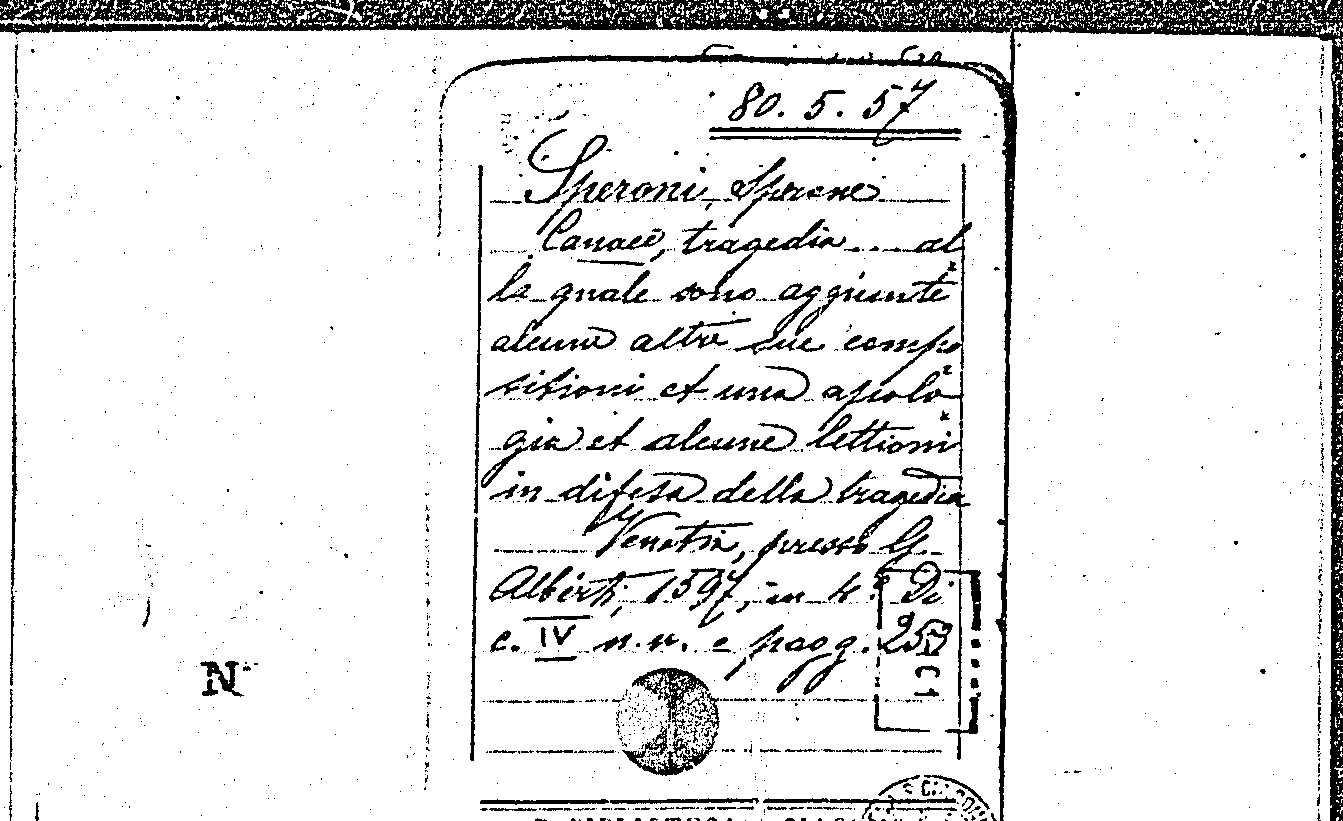 80. 5. 57
Speroni, Sperone
Canace, tragedia... al
la quale sono aggiunte
alcune altre sue compo
sitioni et una apolo
gia et alcune lettioni
in difesa della tragedia
Venetia, presso G.
Alberti, 1597, in 4.° Di
c. IV n. n. e pagg.
N